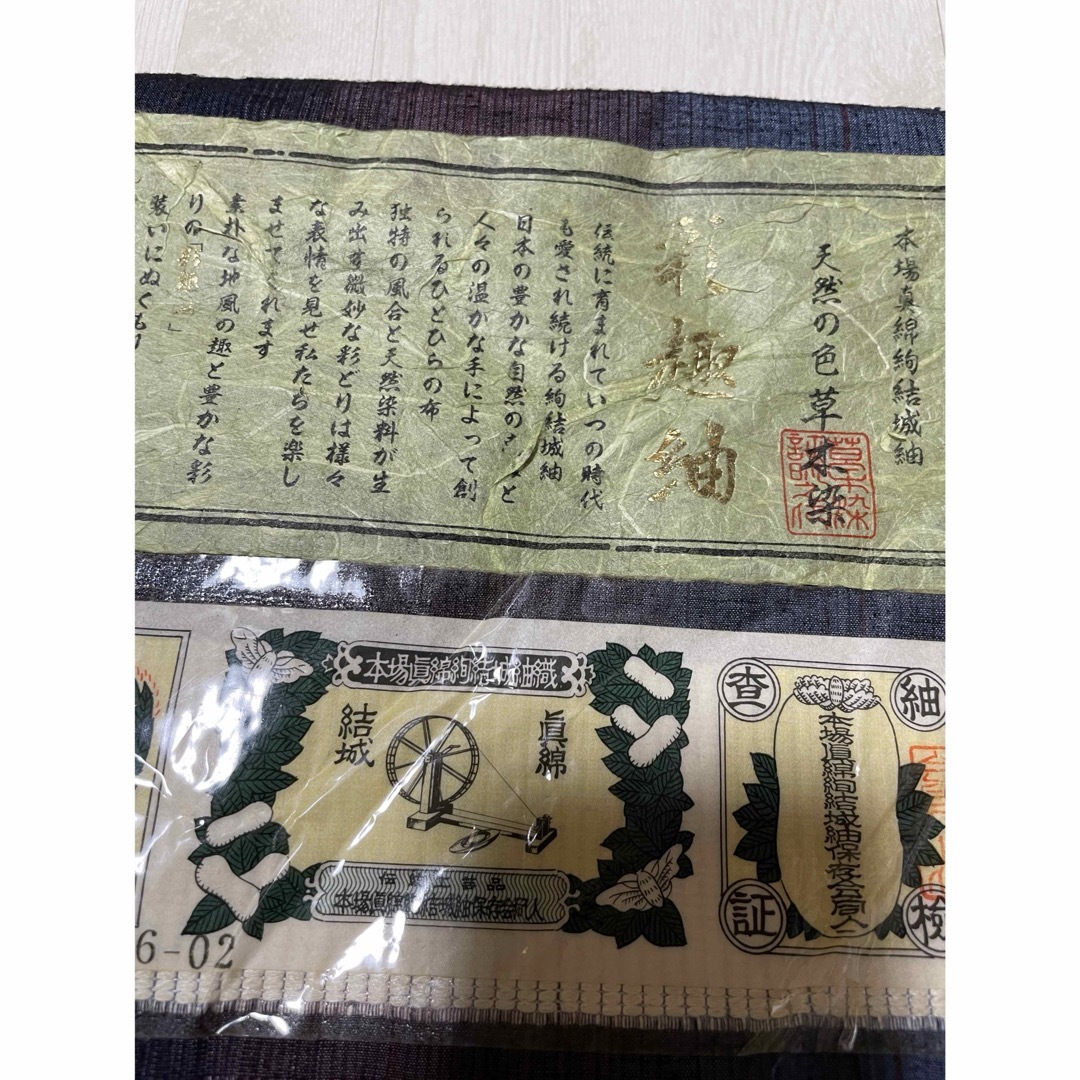 本場真綿絢結城紬
天然の色草木染
彩趣紬
伝統に育まれていつの時代
も愛され続ける絢結城紬
日本の豊かな自然の と
人々の温かな手によって創
られるひとひらの布
独特の風合と天然染料が生
み出す微妙な彩どりは様々
な表情を見せ私たちを楽し
ませてくれます
素朴な地風の趣と豊かな彩
りの「 」
装いにぬくもり
本場眞綿絢結城紬織
眞綿
結城
品
紬
検
査
証
本場眞綿絢結城紬保存会
6-02